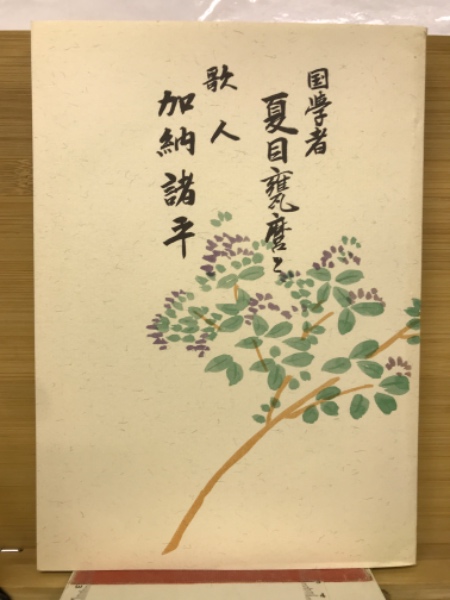 国学者
夏目甕麿と
歌人
加納諸平